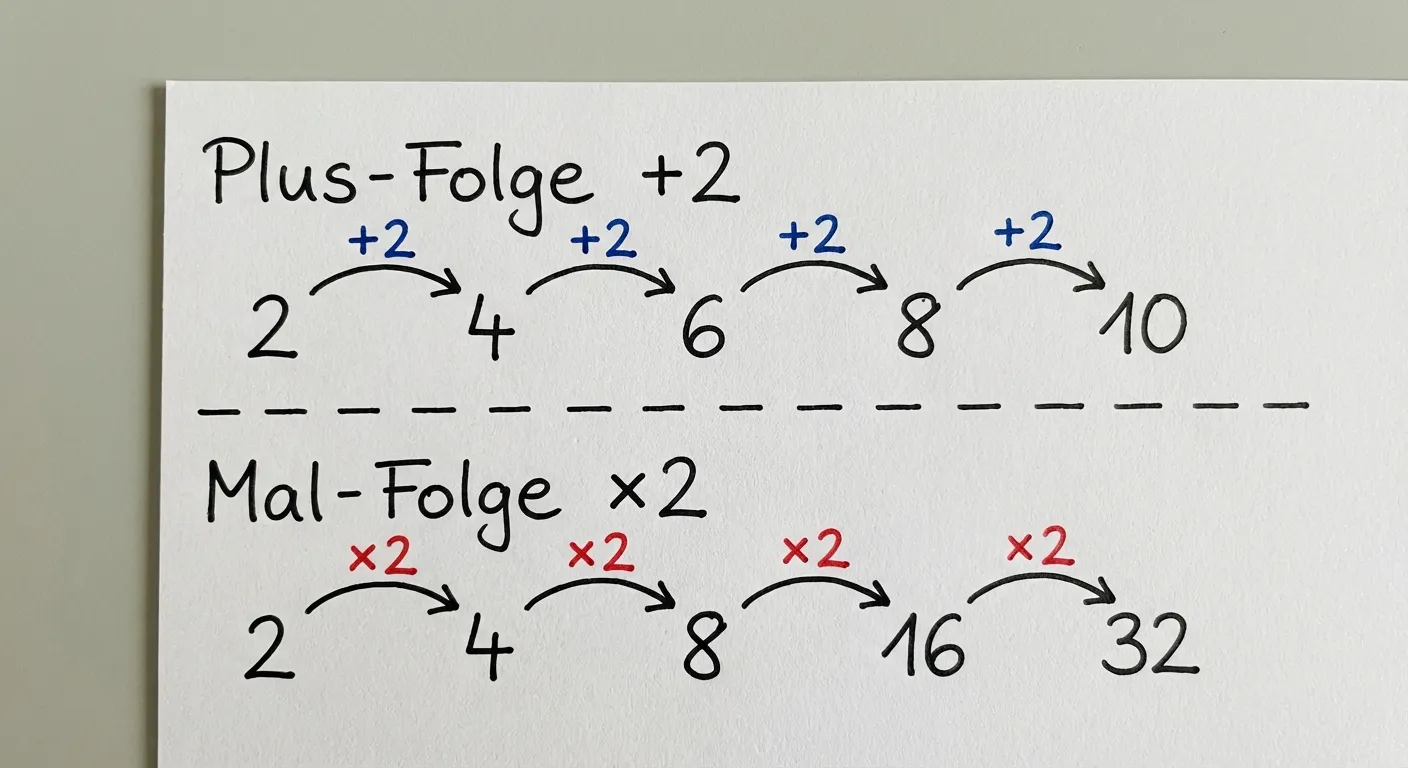 Plus-Folge +2
+2 +2 +2 +2
2 4 6 8 10
Mal-Folge ×2
×2 ×2 ×2 ×2
2 4 8 16 32